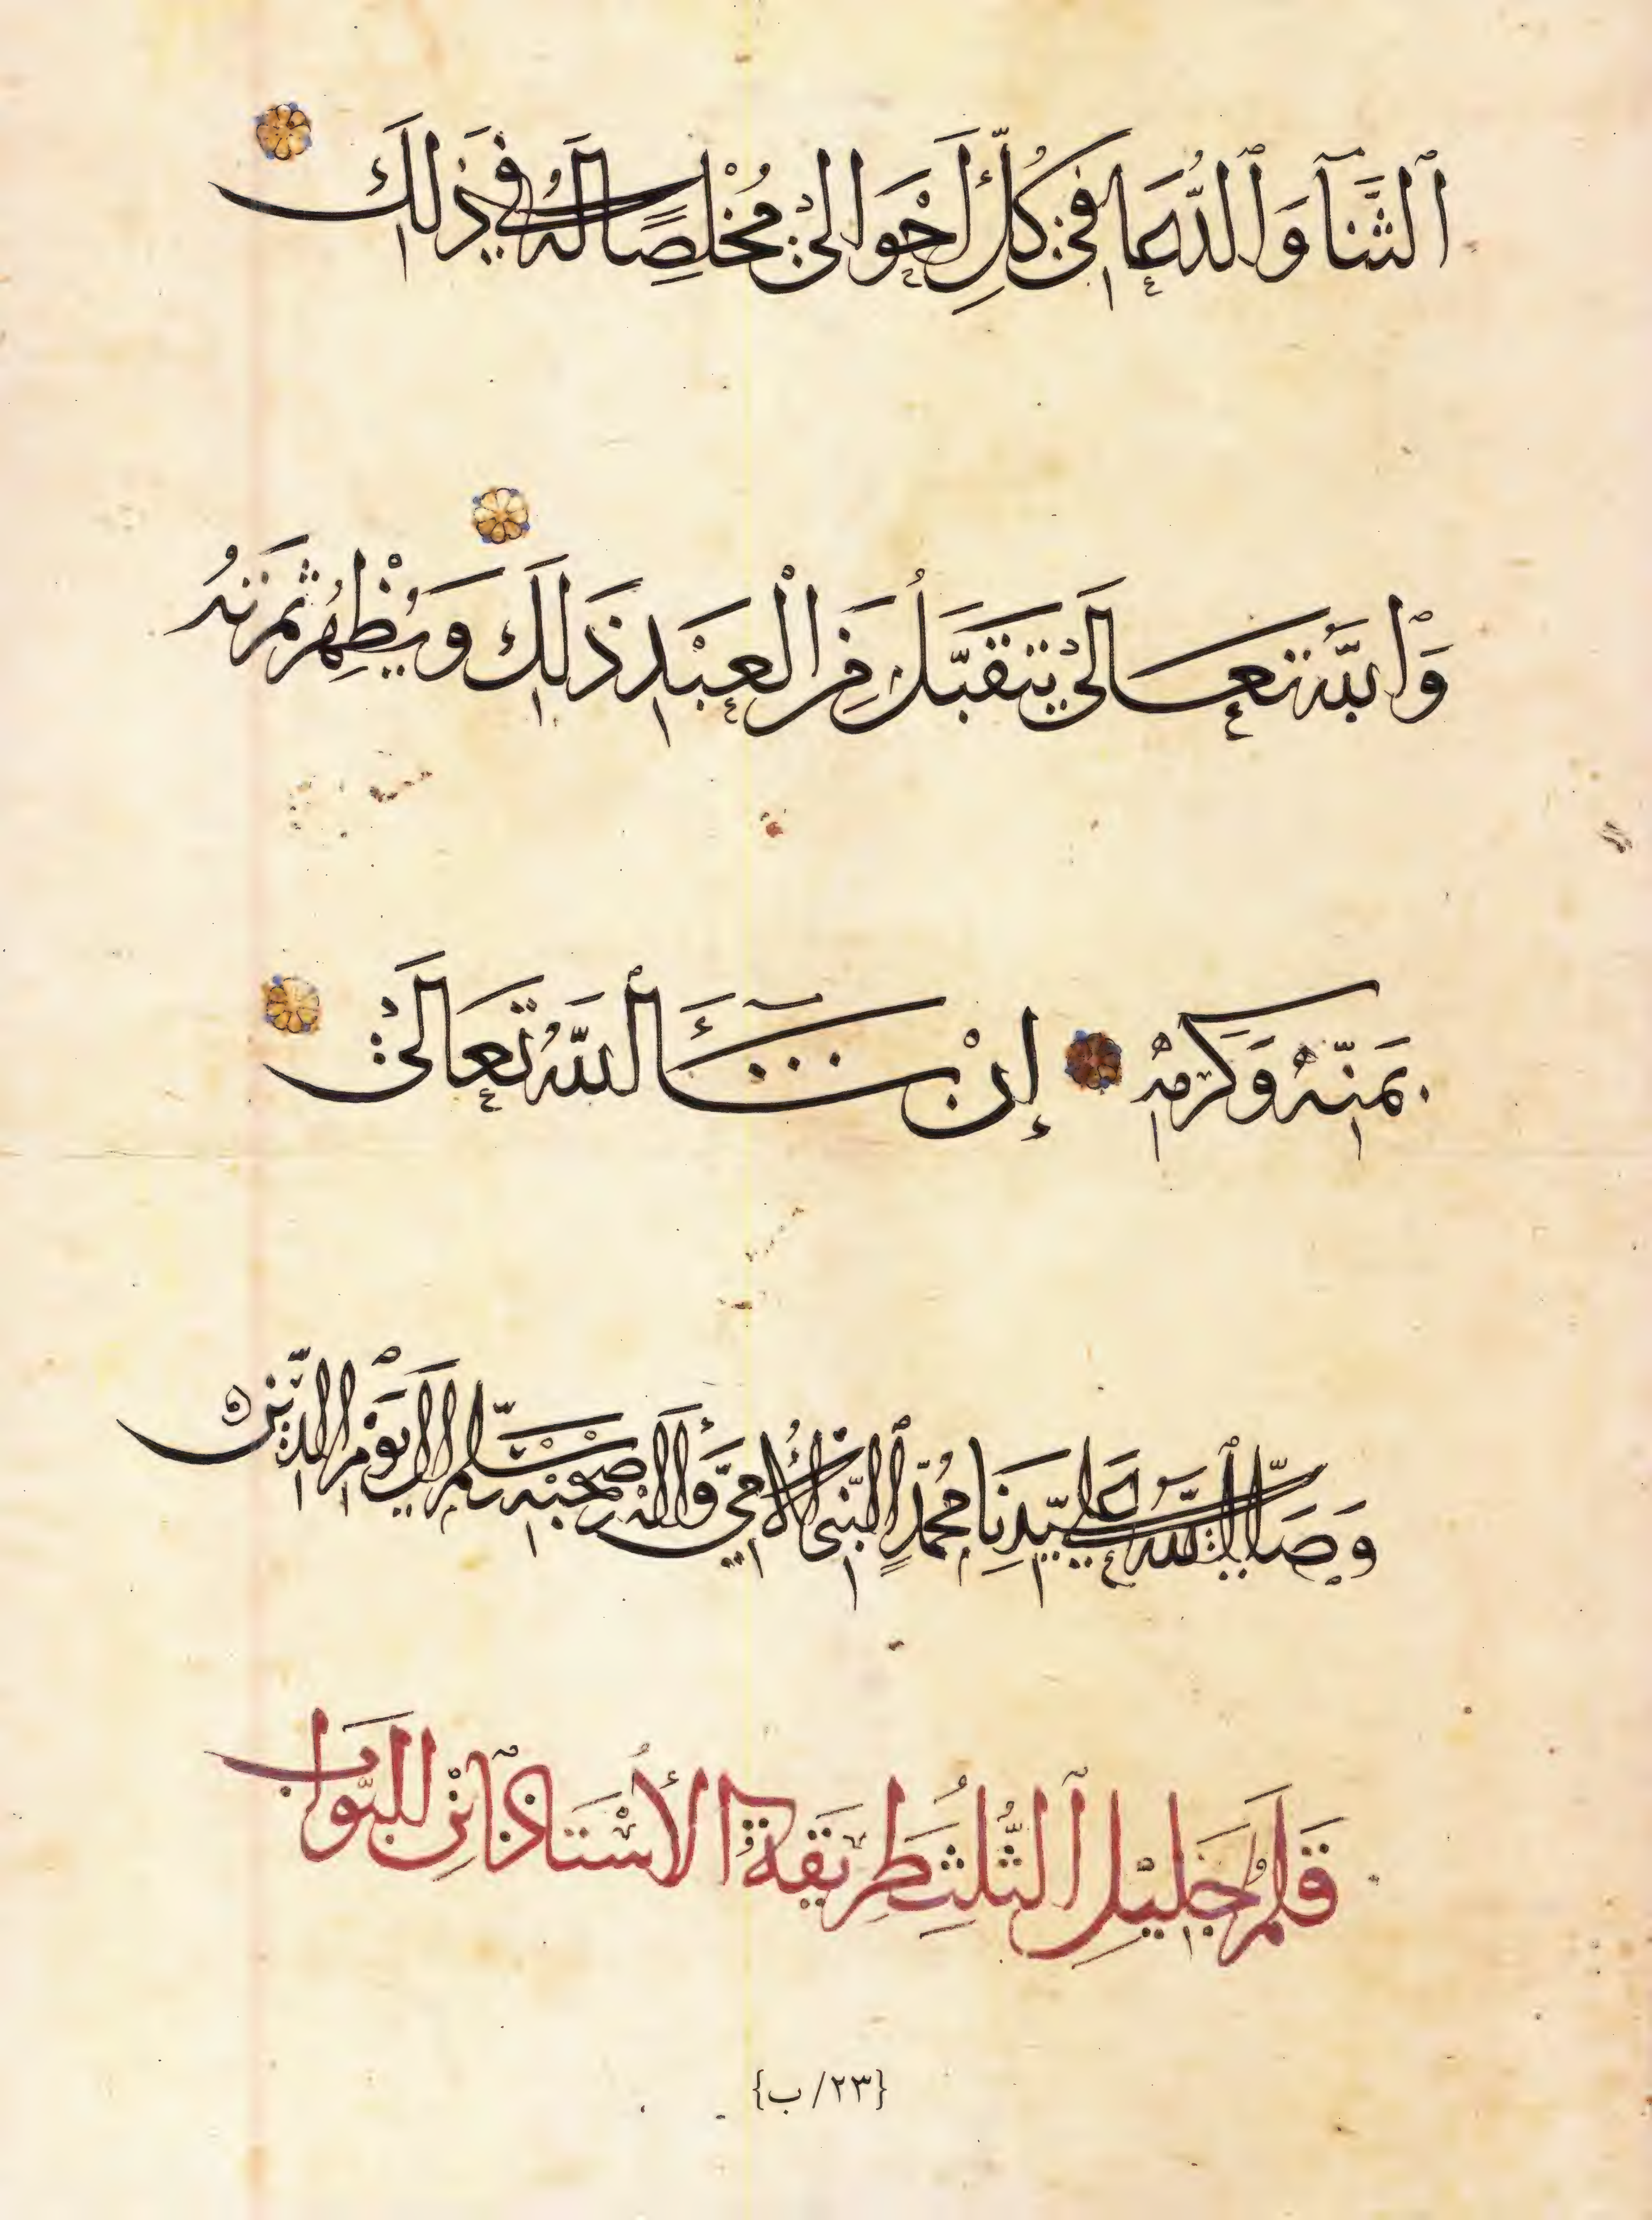 ٱلثَّنَآ وَٱلدُّعَا فِي كُلِّ أَحْوَالِي مُخْلِصًا لَهُ فِي ذَلِكَ
وَٱللَّهُ تَعَالَى يَتَقَبَّلُ مِنَ الْعَبْدِ ذَلِكَ وَيُظْهِرُ ثَمَرَتَهُ
بِمَنِّهِ وَكَرَمِهِ إِنْ شَآءَ ٱللَّهُ تَعَالَى
وَصَلَّى ٱللَّهُ عَلَى سَيِّدِنَا مُحَمَّدٍ ٱلنَّبِيِّ الْأُمِّيِّ وَآلِهِ وَصَحْبِهِ وَسَلَّمَ إِلَى يَوْمِ ٱلدِّينِ
قَلَمُ جَلِيلِ ٱلثُّلُثِ طَرِيقَةُ الْأُسْتَاذِ ابْنِ الْبَوَّابِ
{٢٣/ ب}